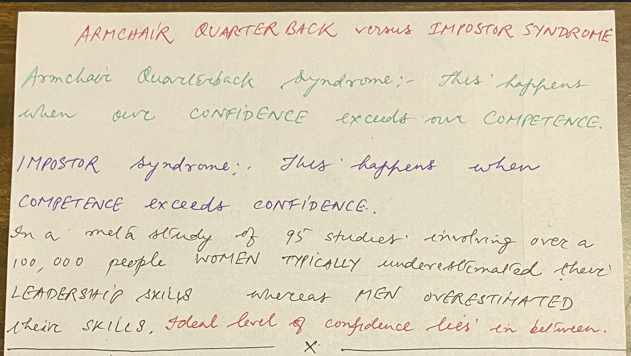 ARMCHAIR QUARTERBACK versus IMPOSTOR SYNDROME
Armchair Quarterback Syndrome:- This happens
when our CONFIDENCE exceeds our COMPETENCE.
IMPOSTOR Syndrome:- This happens when
COMPETENCE exceeds CONFIDENCE.
In a meta study of 95 studies involving over a
100,000 people WOMEN TYPICALLY underestimated their
LEADERSHIP SKILLS whereas MEN OVERESTIMATED
their SKILLS. Ideal level of confidence lies in between.
X